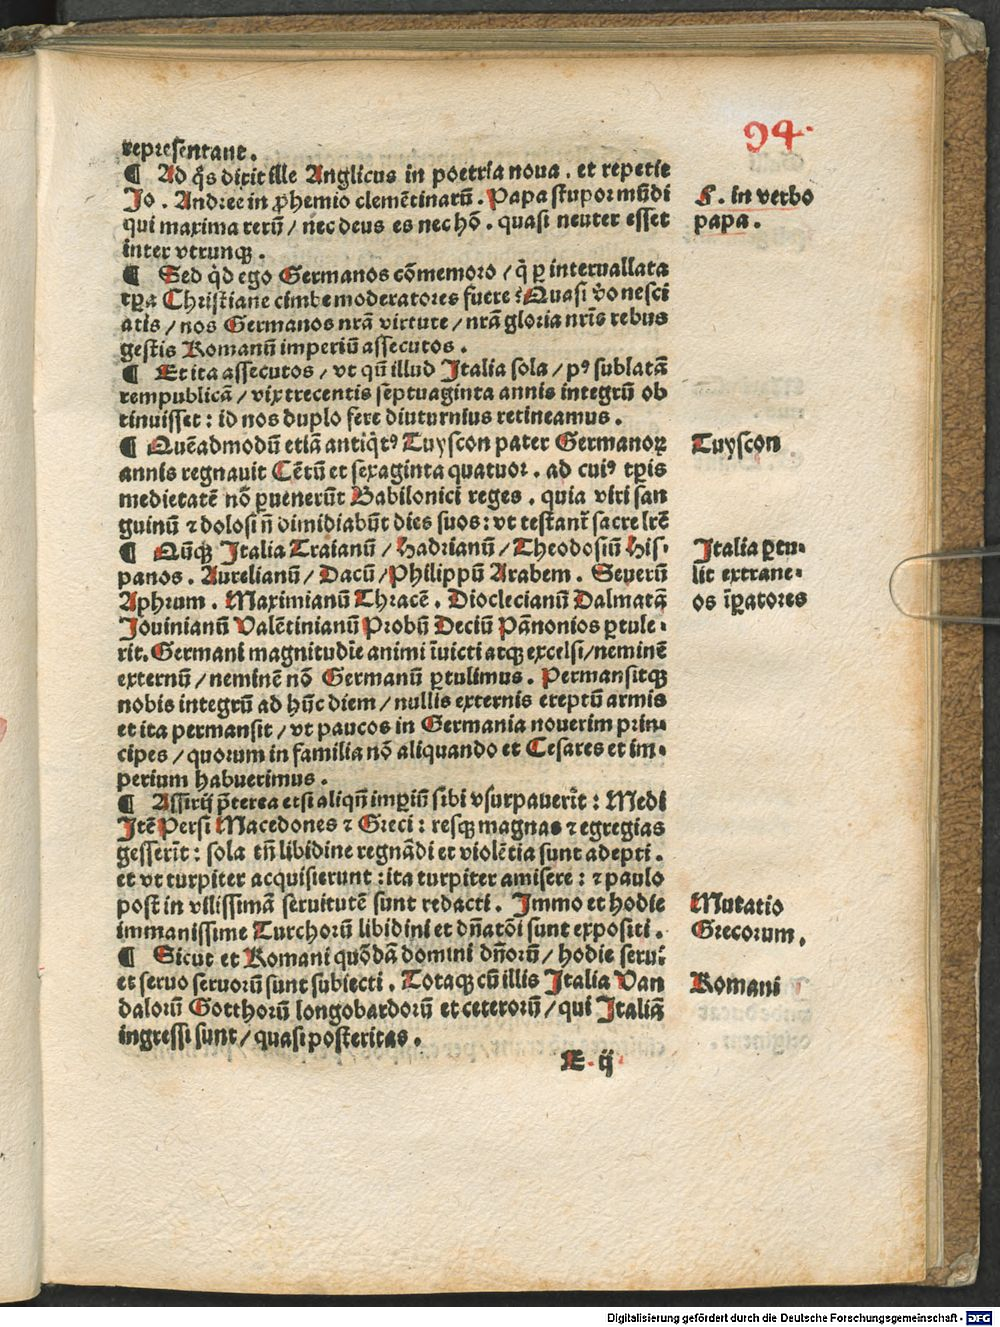 94.
representant.
¶ Ad qͦs dixit ille Anglicus in poetria noua. et repetit
Jo. Andree in ꝓhemio clemētinarū. Papa stupor mūdi
qui maxima rerū / nec deus es nec hō. quasi neuter esset
inter vtrunqꝫ.
F. in verbo
papa.
¶ Sed qͥd ego Germanos cōmemoro / qͥ ꝑ interuallata
tꝑa Christiane cimbe moderatores fuere? Quasi ꝟo nesci
atis / nos Germanos nrā virtute / nrā gloria nris̄ rebus
gestis Romanū imperiū assecutos.
¶ Et ita assecutos / vt qn̄ illud Italia sola / pꝰ sublatā
rempublicā / vix trecentis septuaginta annis integrū ob
tinuisset: id nos duplo fere diuturnius retineamus.
¶ Quēadmodū etiā antiqͥtꝰ Tuyscon pater Germanoꝝ
annis regnauit Cētū et sexaginta quatuor. ad cuiꝰ tꝑis
medietatē nō ꝑuenerūt Babilonici reges. quia viri san
guinū ⁊ dolosi n̄ dimidiabūt dies suos: vt testant᷑ sacre lr̄e
Tuyscon
¶ Qūqꝫ Italia Traianū / Hadrianū / Theodosiū His-
panos. Aurelianū / Dacū / Philippū Arabem. Seuerū
Aphrum. Maximianū Thracē. Dioclecianū Dalmatā
Jouinianū Valētinianū Probū Deciū Pānonios ꝑtule-
rit. Germani magnitudīe animi īuicti atqꝫ excelsi / neminē
externū / neminē nō Germanū ꝑtulimus. Permansitqꝫ
nobis integrū ad hūc diem / nullis externis ereptū armis
et ita permansit / vt paucos in Germania nouerim prin-
cipes / quorum in familia nō aliquando et Cesares et im-
perium habuerimus.
Italia ꝑtu-
lit extrane-
os īꝑatores
¶ Assirij p̄terea etsi aliqn̄ imꝑiū sibi vsurpauerīt: Medi
Itē Persi Macedones ⁊ Greci: resqꝫ magnas ⁊ egregias
gesserīt: sola tn̄ libidine regnādi et violētia sunt adepti.
et vt turpiter acquisierunt: ita turpiter amisere: ⁊ paulo
post in vilissimā seruitutē sunt redacti. Immo et hodie
immanissime Turchorū libidini et dn̄atōi sunt expositi.
Mutatio
Grecorum.
¶ Sicut et Romani quōdā domini dn̄orū / hodie serui
et seruo seruorū sunt subiecti. Totaqꝫ cū illis Italia Van
dalorū Gotthorū longobardorū et ceterorū / qui Italiā
ingressi sunt / quasi posteritas.
Romani
E ij
Digitalisierung gefördert durch die Deutsche Forschungsgemeinschaft - DFG